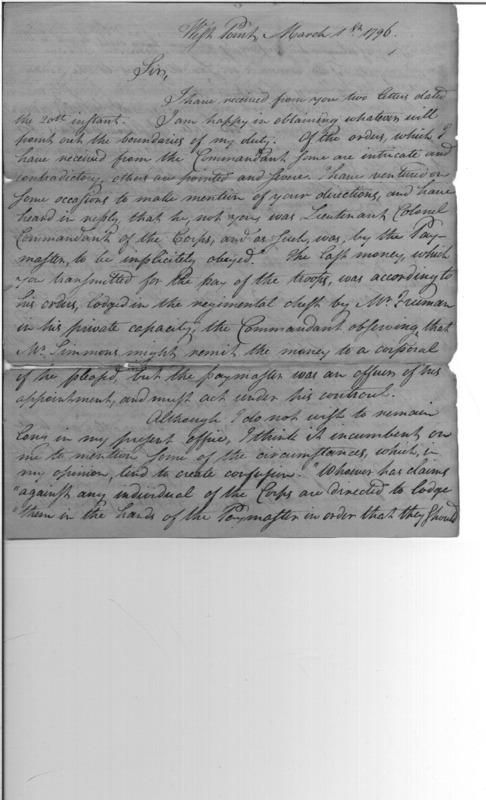 West Point, March 1st 1796.
Sir,
I have received from you two letters dated
the 20th instant. I am happy in obtaining whatever will
point out the boundaries of my duty. Of the orders, which I
have received from the Commandant some are intricate and
contradictory, others are pointed and severe. I have ventured on
some occasions to make mention of your directions, and have
heard in reply, that he, not you, was Lieutenant Colonel
Commandant of the Corps, and as such, was, by the Pay-
master, to be implicitely obeyed." The last money, which
you transmitted for the pay of the troops, was according to
his orders, lodged in the regimental chest by Mr. Freeman
in his private capacity, the Commandant observing "that
Mr. Simmons might remit the money to a corporal
if he pleased, but the paymaster was an officer of his
appointment, and must act under his controul.
Although I do not wish to remain
long in my present office, I think it incumbent on
me to mention some of the circumstances, which, in
my opinion, tend to create confusion. "Whoever has claims
"against any individual of the Corps are directed to lodge
"them in the hands of the Paymaster in order that they should